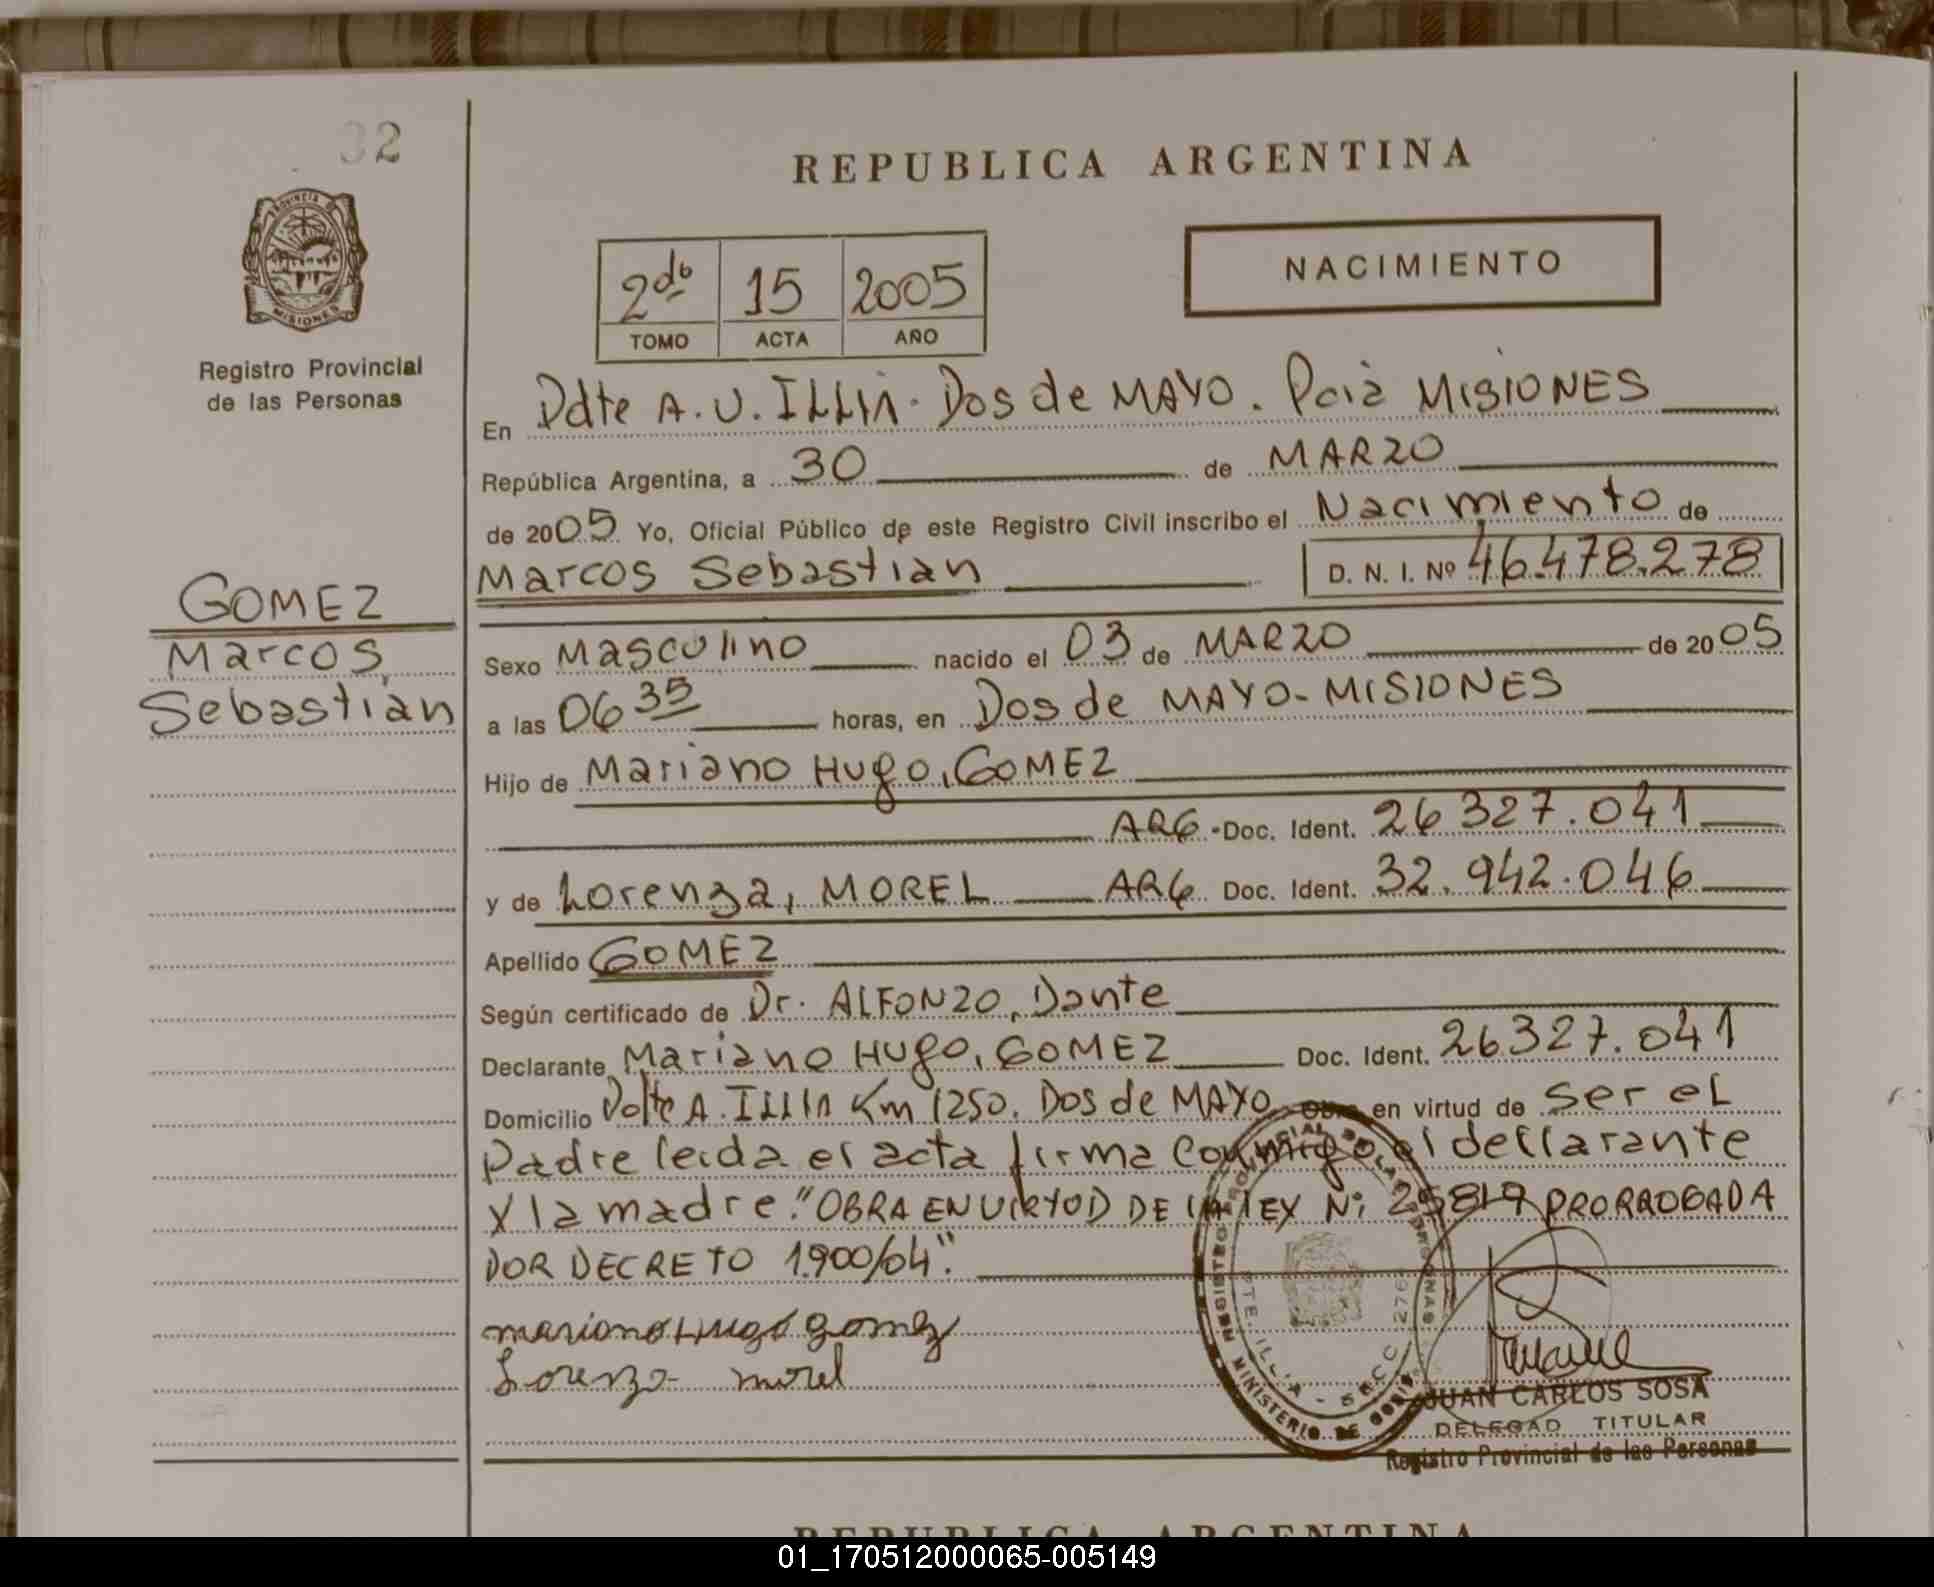 32
REPUBLICA ARGENTINA
PROVINCIA DE
MISIONES
Registro Provincial
de las Personas
2do 15 2005
TOMO ACTA AÑO
NACIMIENTO
En Ddte A. U. ILLIA. Dos de MAYO. Pcia MISIONES
República Argentina, a 30 de MARZO
de 2005 Yo, Oficial Público de este Registro Civil inscribo el Nacimiento de
Marcos Sebastian D. N. I. Nº 46.478.278
GOMEZ
Marcos
Sebastian
Sexo Masculino nacido el 03 de MARZO de 2005
a las 06 35 horas, en Dos de MAYO-MISIONES
Hijo de Mariano Hugo, GOMEZ
ARG - Doc. Ident. 26 327.041
y de Lorenza, MOREL ARG Doc. Ident. 32.942.046
Apellido GOMEZ
Según certificado de Dr. ALFONZO, Dante
Declarante Mariano Hugo, GOMEZ Doc. Ident. 26327.041
Domicilio Ddte A. ILLIA Km 1250. Dos de MAYO en virtud de ser el
Padre leida el acta firma conmigo el declarante
y la madre. "OBRA EN VIRTUD DE LA LEY Nº 25819 PRORROGADA
POR DECRETO 1.900/04".
mariano Hugo gomez
Lorenza morel
REGISTRO PROVINCIAL DE LAS PERSONAS
MINISTERIO DE GOB
PTE. ILLIA - SECC 276
JUAN CARLOS SOSA
DELEGAD TITULAR
Registro Provincial de las Personas
REPUBLICA ARGENTINA
01_170512000065-005149